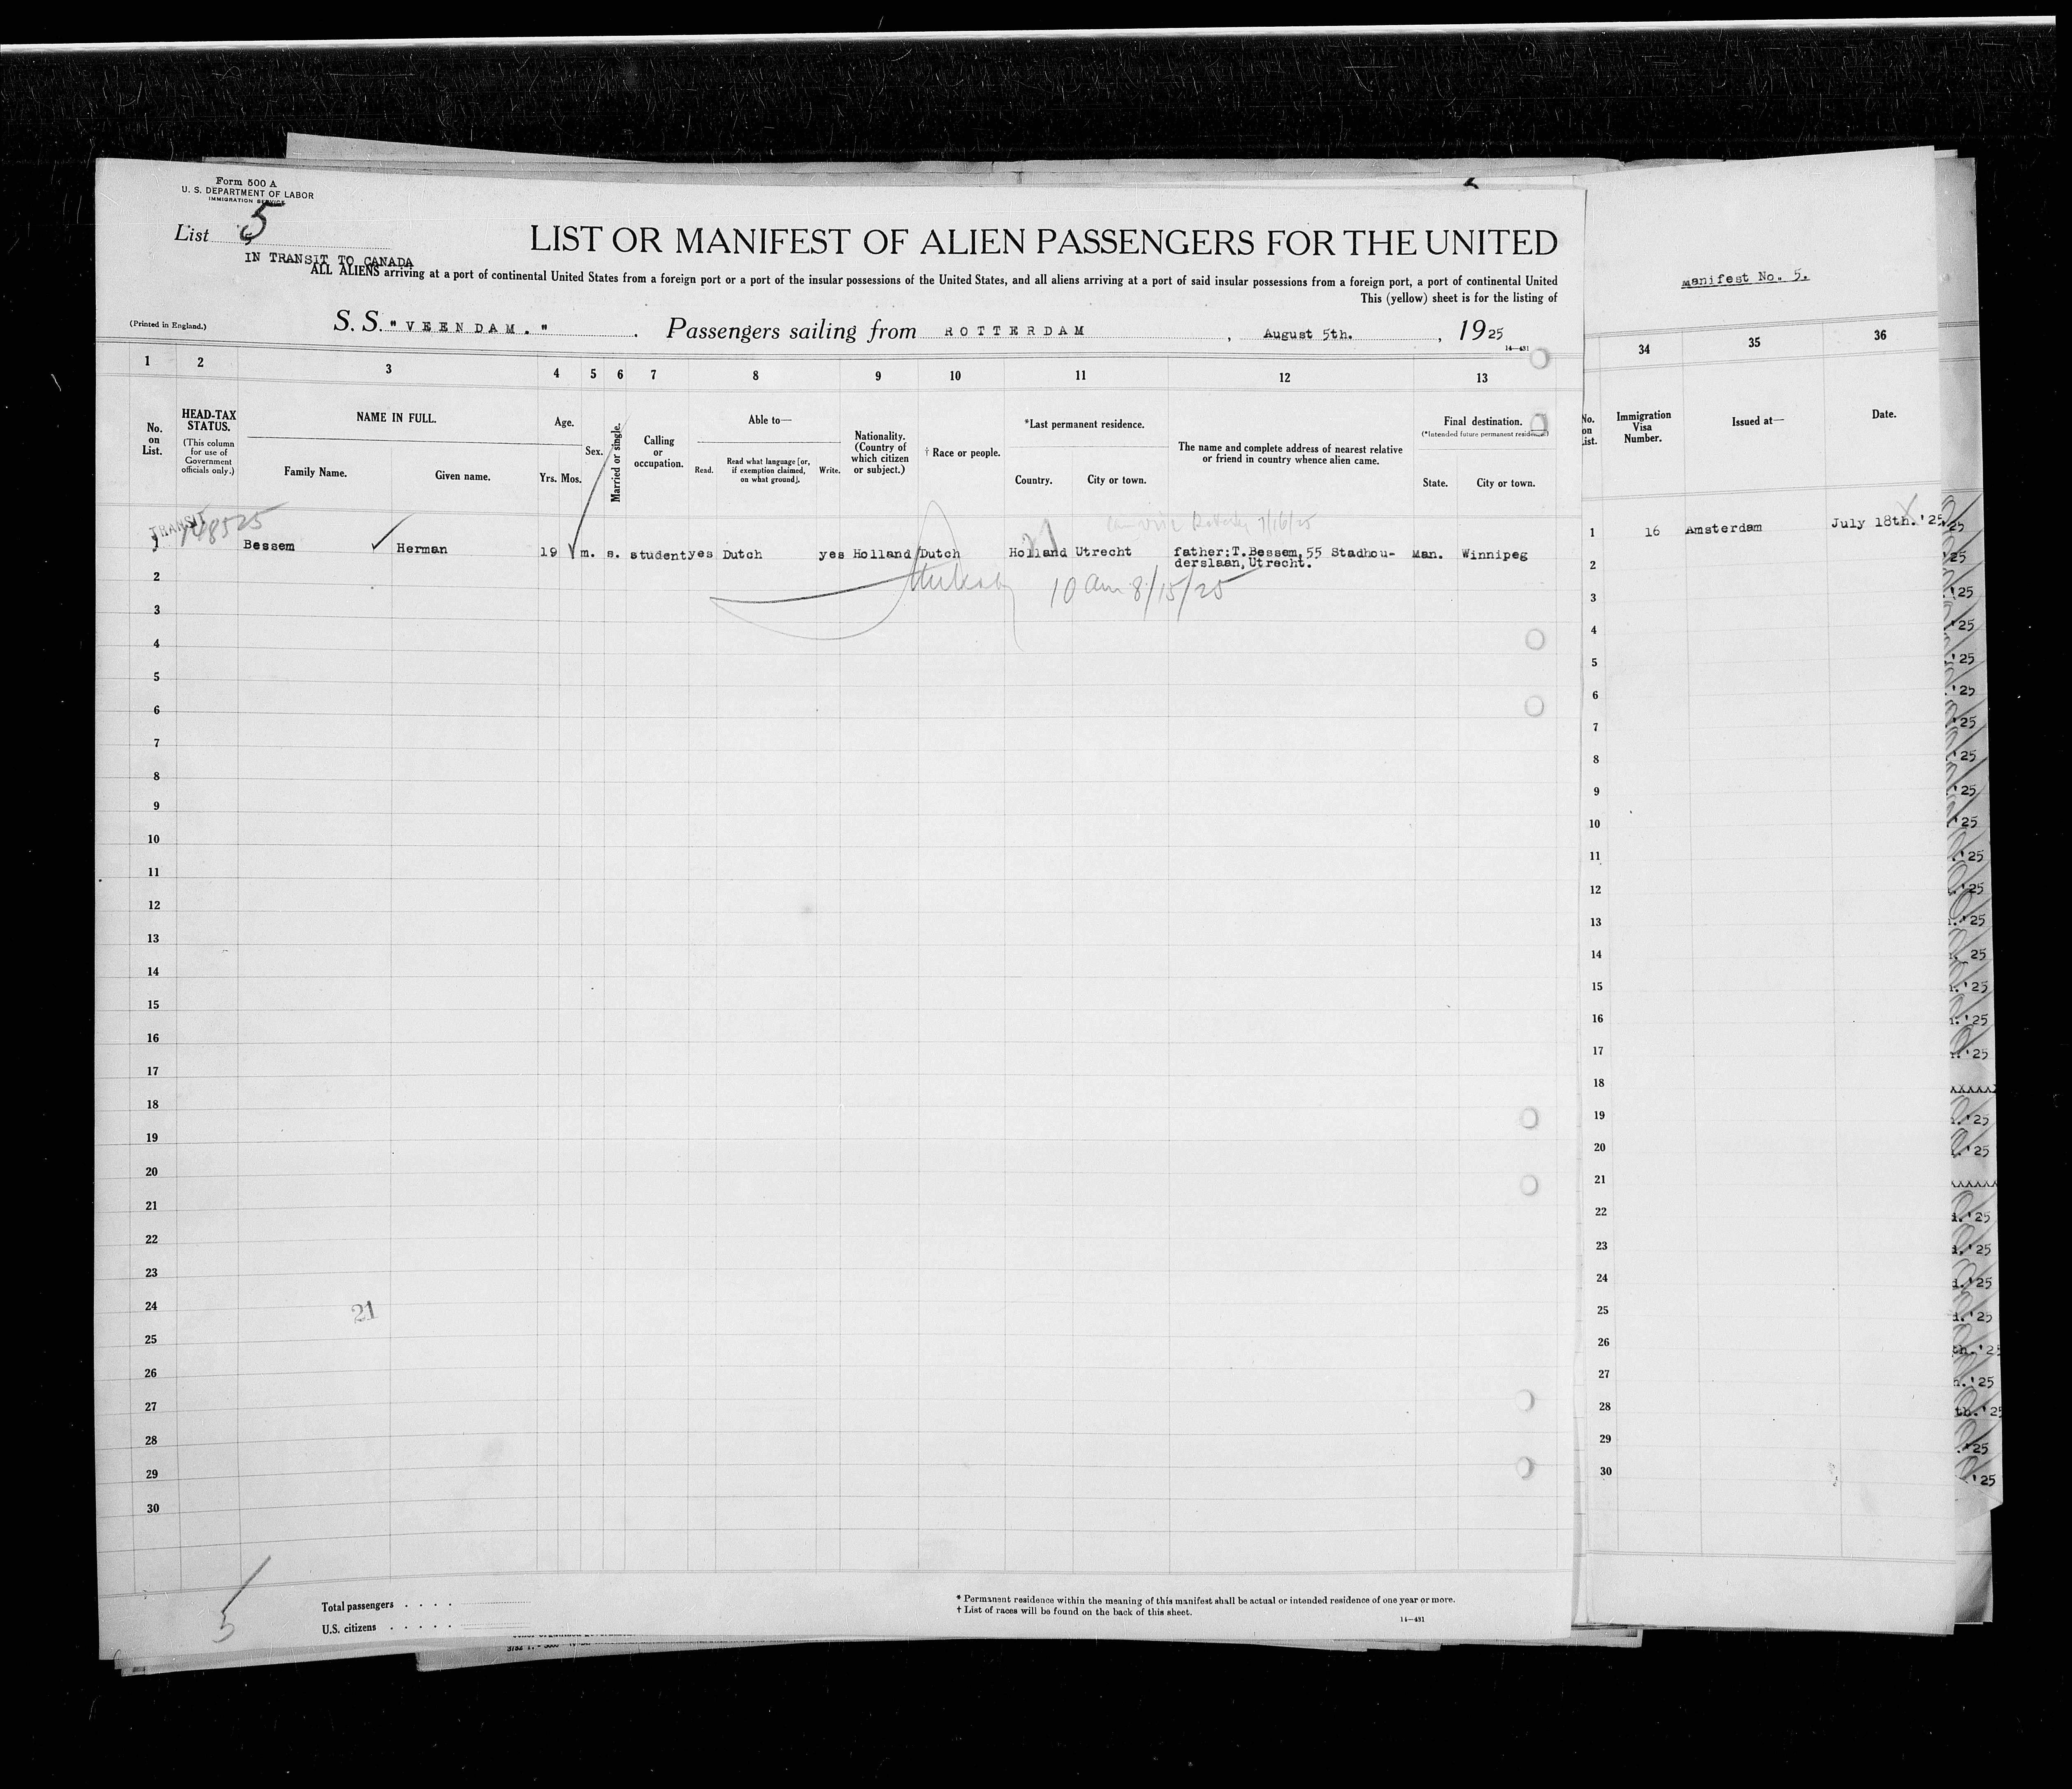 Form 500 A
U. S. DEPARTMENT OF LABOR
IMMIGRATION SERVICE
List 5
LIST OR MANIFEST OF ALIEN PASSENGERS FOR THE UNITED
IN TRANSIT TO CANADA
ALL ALIENS arriving at a port of continental United States from a foreign port or a port of the insular possessions of the United States, and all aliens arriving at a port of said insular possessions from a foreign port, a port of continental United
This (yellow) sheet is for the listing of
(Printed in England.)
S. S. "VEENDAM." Passengers sailing from ROTTERDAM, August 5th., 1925
14—431
1 2 3 4 5 6 7 8 9 10 11 12 13
No. on List.
HEAD-TAX STATUS.
(This column for use of Government officials only.)
NAME IN FULL.
Family Name. Given name.
Age.
Yrs. Mos.
Sex.
Married or single.
Calling or occupation.
Able to—
Read. Read what language [or, if exemption claimed, on what ground]. Write.
Nationality. (Country of which citizen or subject.)
† Race or people.
*Last permanent residence.
Country. City or town.
The name and complete address of nearest relative or friend in country whence alien came.
Final destination.
(*Intended future permanent residence)
State. City or town.
TRANSIT
1 Bessem Herman 19 m. s. student yes Dutch yes Holland Dutch Holland Utrecht father: T. Bessem, 55 Stadhou- Man. Winnipeg
derslaan, Utrecht.
10 am 8/15/25
2
3
4
5
6
7
8
9
10
11
12
13
14
15
16
17
18
19
20
21
22
23
24
21
25
26
27
28
29
30
5
Total passengers . . . .
U.S. citizens . . . . .
* Permanent residence within the meaning of this manifest shall be actual or intended residence of one year or more.
† List of races will be found on the back of this sheet.
14—431
Manifest No. 5.
34 35 36
No. on List.
Immigration Visa Number.
Issued at—
Date.
1 16 Amsterdam July 18th. '25
2
3
4
5
6
7
8
9
10
11
12
13
14
15
16
17
18
19
20
21
22
23
24
25
26
27
28
29
30